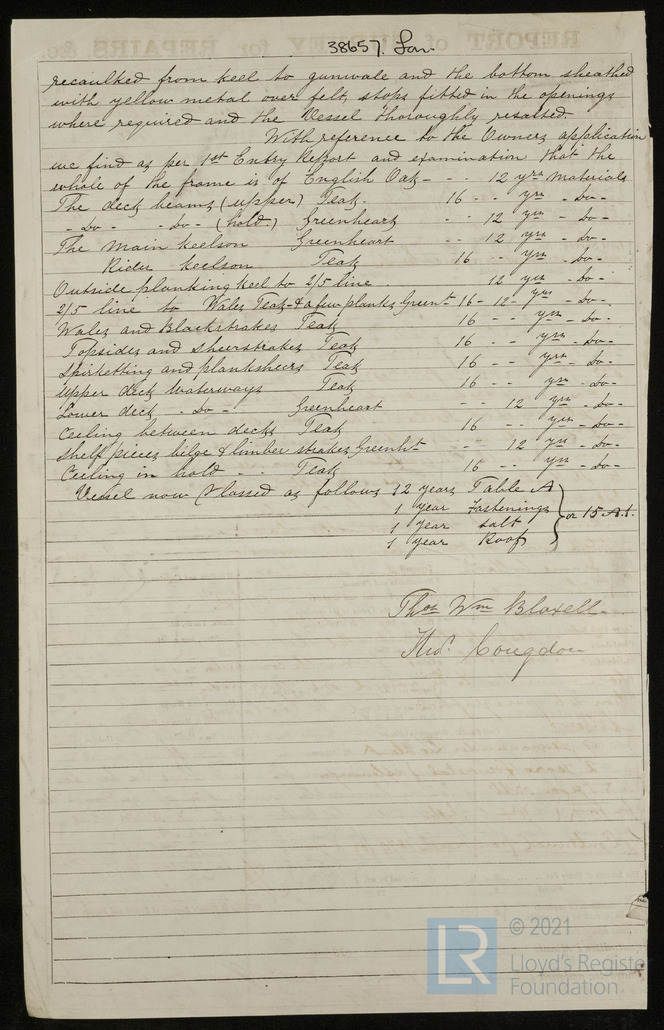 38657. Lon.
recaulked from keel to gunwale and the bottom sheathed
with yellow metal over felt, stops fitted in the openings
where required and the Vessel thoroughly resalted.
With reference to the Owners application
we find as per 1st Entry Report and examination that the
whole of the frame is of English Oak - - - 12 yrs materials
The deck beams (upper) Teak. 16 - - yrs - do -
- Do - - do - (hold) Greenheart - - 12 yrs - do -
The Main keelson Greenheart - - 12 yrs - do -
Rider keelson Teak 16 - - yrs - do -
Outside planking keel to 2/5 line . 12 yrs - do -
2/5 line to Wales Teak & a few planks Greent 16 - 12 - yrs - do -
Wales and Blackstrakes Teak 16 - - yrs - do -
Topsides and Sheerstrakes Teak 16 - - yrs - do -
Spirketting and planksheers Teak 16 - - yrs - do -
Upper deck Waterways Teak 16 - - yrs - do -
Lower deck - do - Greenheart - - 12 yrs - do -
Ceiling between decks Teak 16 - - yrs - do -
Shelf pieces bilge & limber strakes Greenht - - 12 yrs - do -
Ceiling in hold - - - Teak 16 - - yrs - do -
Vessel now Classed as follows 12 years Table A
1 year Fastenings
or 15 A.1.
1 year Salt
1 year Roof
Thos Wm Bloxell
Thos. Congdon
© 2021
LR
Lloyd's Register
Foundation